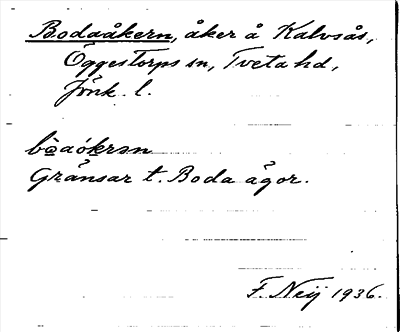 Bodaåkern, åker å Kalvsås,
Öggestorps sn, Tveta hd,
Jönk. l.
bòaókrən
Gränsar t. Boda ägor.
F. Neij 1936.